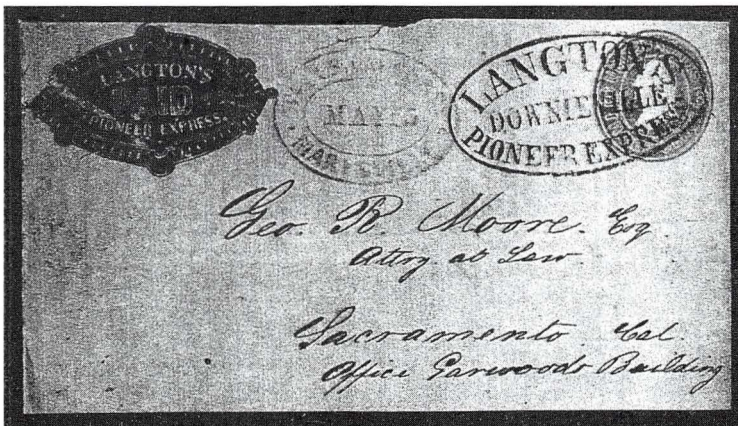 LANGTON'S
PAID
PIONEER EXPRESS.
MAY 15
MARYSVILLE
LANGTON'S
DOWNIEVILLE
PIONEER EXPRESS
Geo. R. Moore. Esq
Attny. at Law
Sacramento. Cal.
Office Garwoods Building